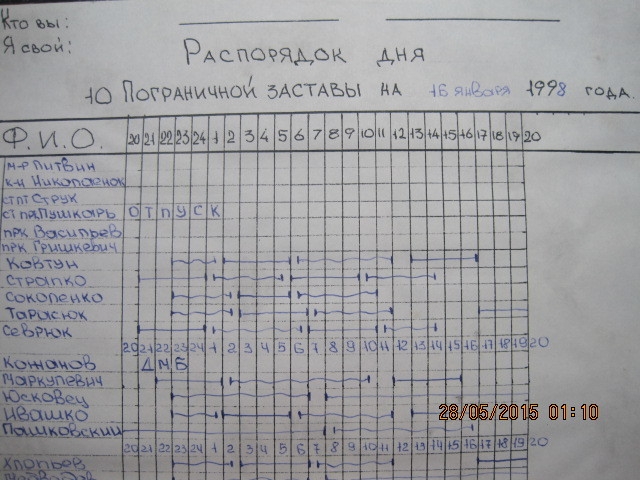 Кто вы:
Я свой:
РАСПОРЯДОК ДНЯ
10 ПОГРАНИЧНОЙ ЗАСТАВЫ НА 16 января 1998 года.
Ф.И.О. 20 21 22 23 24 1 2 3 4 5 6 7 8 9 10 11 12 13 14 15 16 17 18 19 20
м-р Литвин
к-н Николаенок
ст пт Струк
ст пр Пушкарь О Т П У С К
прк Васильев
прк Гришкевич
Ковтун
Страпко
Соколенко
Тарасюк
Севрюк
20 21 22 23 24 1 2 3 4 5 6 7 8 9 10 11 12 13 14 15 16 17 18 19 20
Кожанов Д М Б
Маркулевич
Юсковец
Ивашко
Пашковский
20 21 22 23 24 1 2 3 4 5 6 7 8 9 10 11 12 13 14 15 16 17 18 19 20
Хлопьев
28/05/2015 01:10